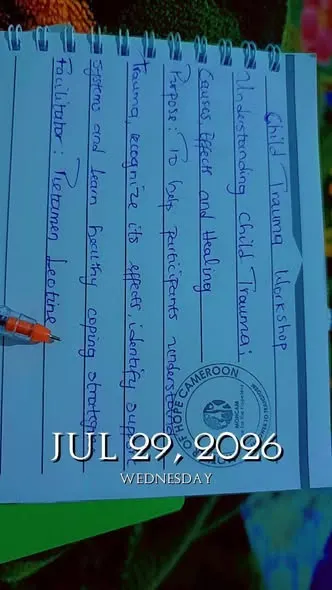 Child Trauma Workshop
Understanding Child Trauma;
Causes, Effects and Healing
Purpose: To help participants understand
trauma, recognize its effects, identify support
systems and learn healthy coping
Facilitator: Leotine
OF HOPE CAMEROON
JUL 29, 2026
WEDNESDAY